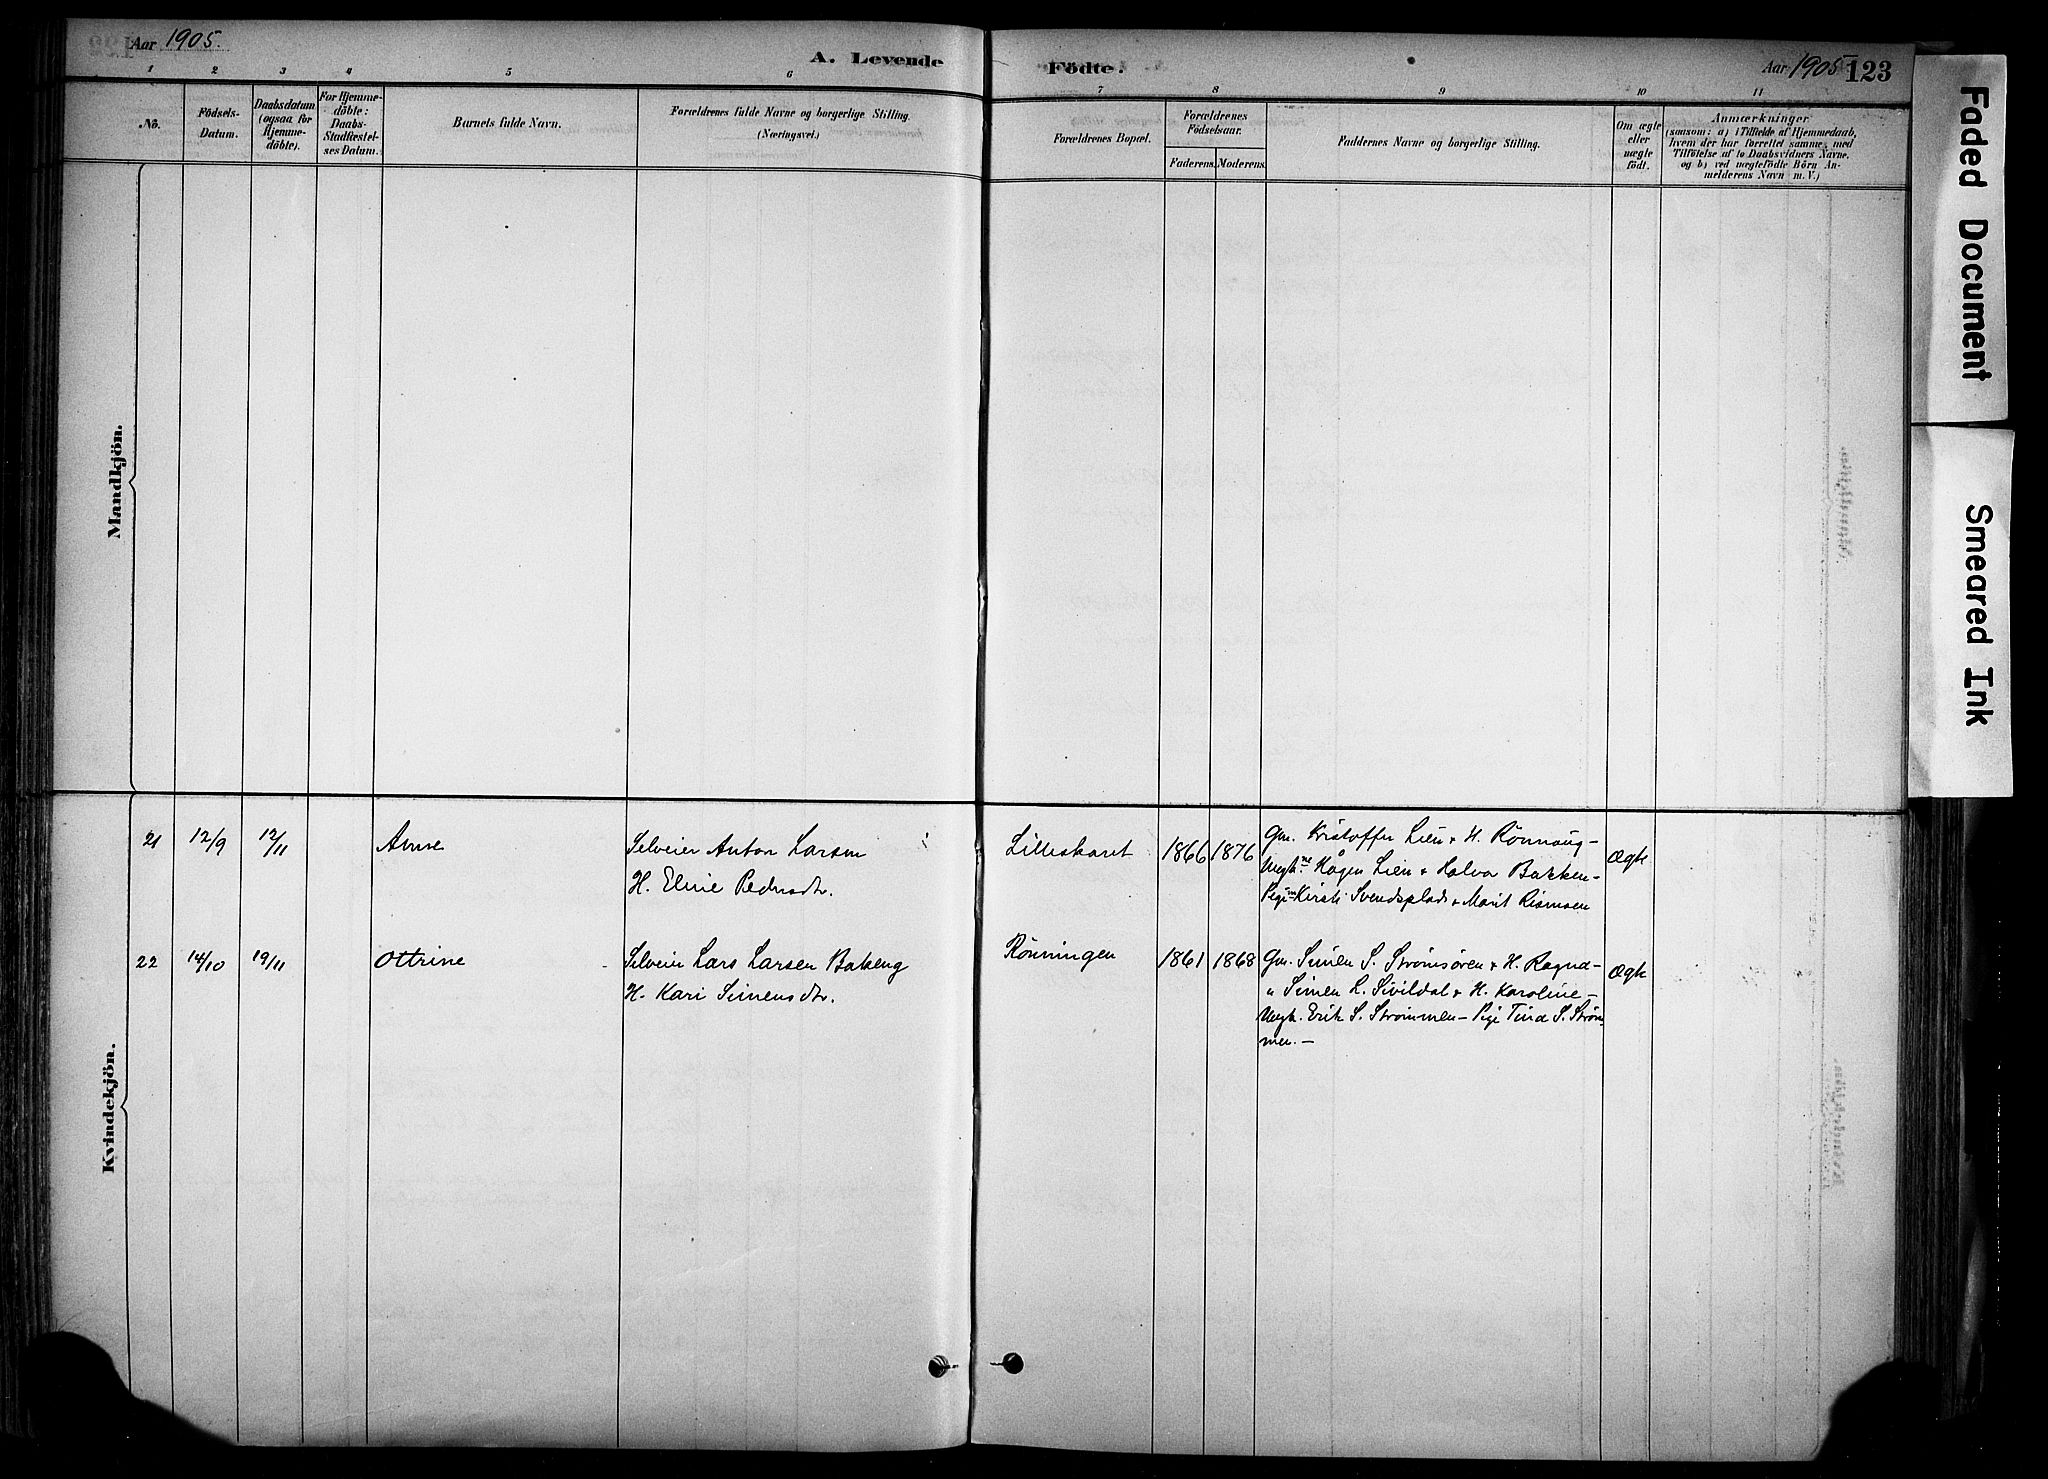 Aar 1905.
A. Levende Födte.
Aar 1905 123
1 2 3 4 5 6 7 8 9 10 11
No.
Födsels-
Datum.
Daabsdatum
(ogsaa for
Hjemme-
döbte).
For Hjemme-
döbte:
Daabs-
Stadfæstel-
ses Datum.
Barnets fulde Navn.
Forældrenes fulde Navne og borgerlige Stilling.
(Næringsvei.)
Forældrenes Bopæl.
Forældrenes
Födselsaar.
Faderens. Moderens.
Faddernes Navne og borgerlige Stilling.
Om ægte
eller
uægte
födt.
Anmærkninger
(saasom: a) i Tilfælde af Hjemmedaab,
hvem der har forrettet samme, med
Tilföielse af to Daabsvidners Navne,
og b) ved uægtefödte Börn An-
melderens Navn m. V.)
Mandkjön.
Kvindekjön.
21 12/9 12/11 Anne
Selveier Anton Larsen
H. Eline Pedersdtr.
Lilleskaret 1866 1876
Gm. Kristoffer Lien & H. Rønnaug-
Ungk.ne Hågen Lien & Halvor Bakken-
Pige Kirsti Svendsplads & Marit
Ægte
22 14/10 19/11 Ottrine
Selveier Lars Larsen Bakeng
H. Kari Simensdtr.
Rønningen 1861 1868
Gm. Simen S. Strømsøren & H. Ragna-
" Simen L. Sivildal & H. Karoline-
Ungk. Erik S. Strømmen- Pige Tina S. Strøm-
men.-
Ægte
Faded Document
Smeared Ink